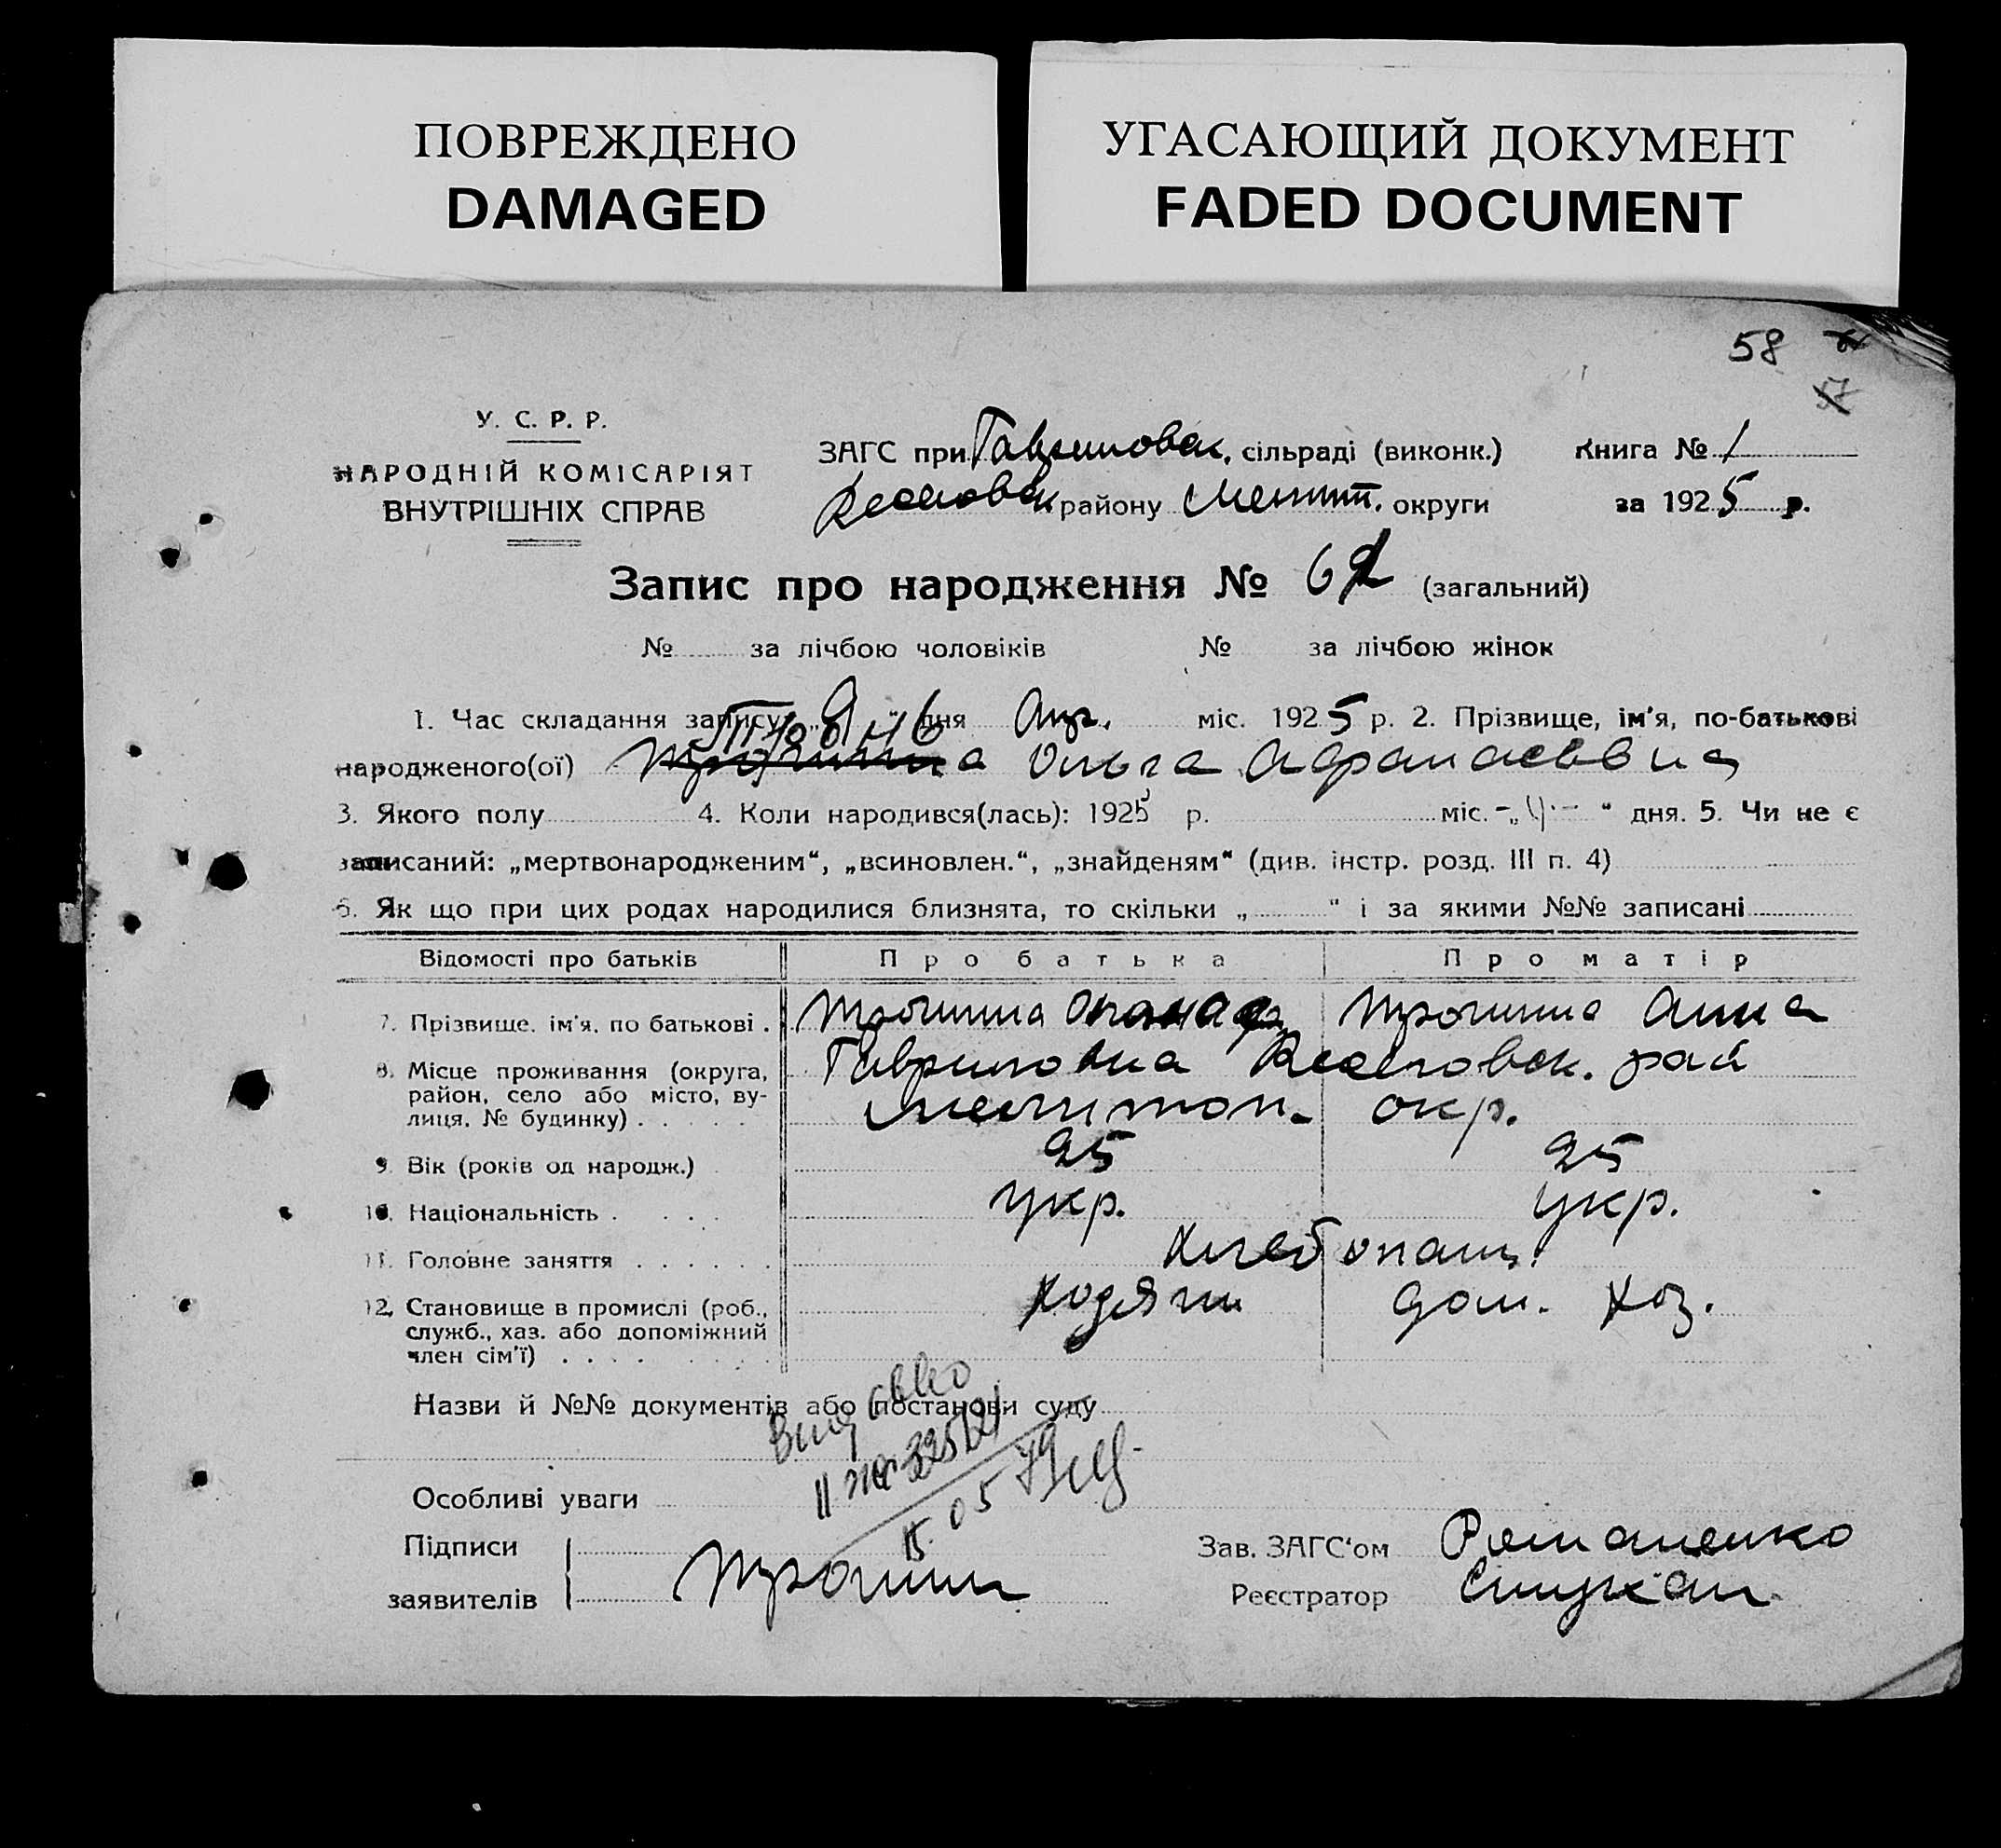 ПОВРЕЖДЕНО
DAMAGED
УГАСАЮЩИЙ ДОКУМЕНТ
FADED DOCUMENT
58
57
У. С. Р. Р.
НАРОДНІЙ КОМІСАРІЯТ
ВНУТРІШНІХ СПРАВ
ЗАГС при Гавриловск. сільраді (виконк.)
району Мелит. округи
Книга № 1
за 1925 р.
Запис про народження № (загальний)
№ за лічбою чоловіків № за лічбою жінок
1. Час складання запису „9“ дня Апр. міс. 1925 р. 2. Прізвище, ім'я, по-батькові
народженого(ої) Ольга Афанасьевна
3. Якого полу 4. Коли народився(лась): 1925 р. міс. „ “ дня. 5. Чи не є
записаний: „мертвонародженим“, „всиновлен.“, „знайденям“ (див. інстр. розд. III п. 4)
6. Як що при цих родах народилися близнята, то скільки „ “ і за якими №№ записані
Відомості про батьків
Про батька
Про матір
7. Прізвище, ім'я, по батькові .
Анна
8. Місце проживання (округа,
район, село або місто, ву-
лиця, № будинку) . . . . .
Гавриловка Веселовск. рай
Мелитоп. окр.
9. Вік (років од народж.)
25
25
10. Національність . . . .
укр.
укр.
11. Головне заняття . . . . . .
Хлебопаш.
12. Становище в промислі (роб.,
служб., хаз. або допоміжний
член сім'ї) . . . . . . .
Хозяин
дом. хоз.
Назви й №№ документів або постанови суду
Особливі уваги
Підписи
заявителів
Зав. ЗАГС'ом Романенко
Реєстратор